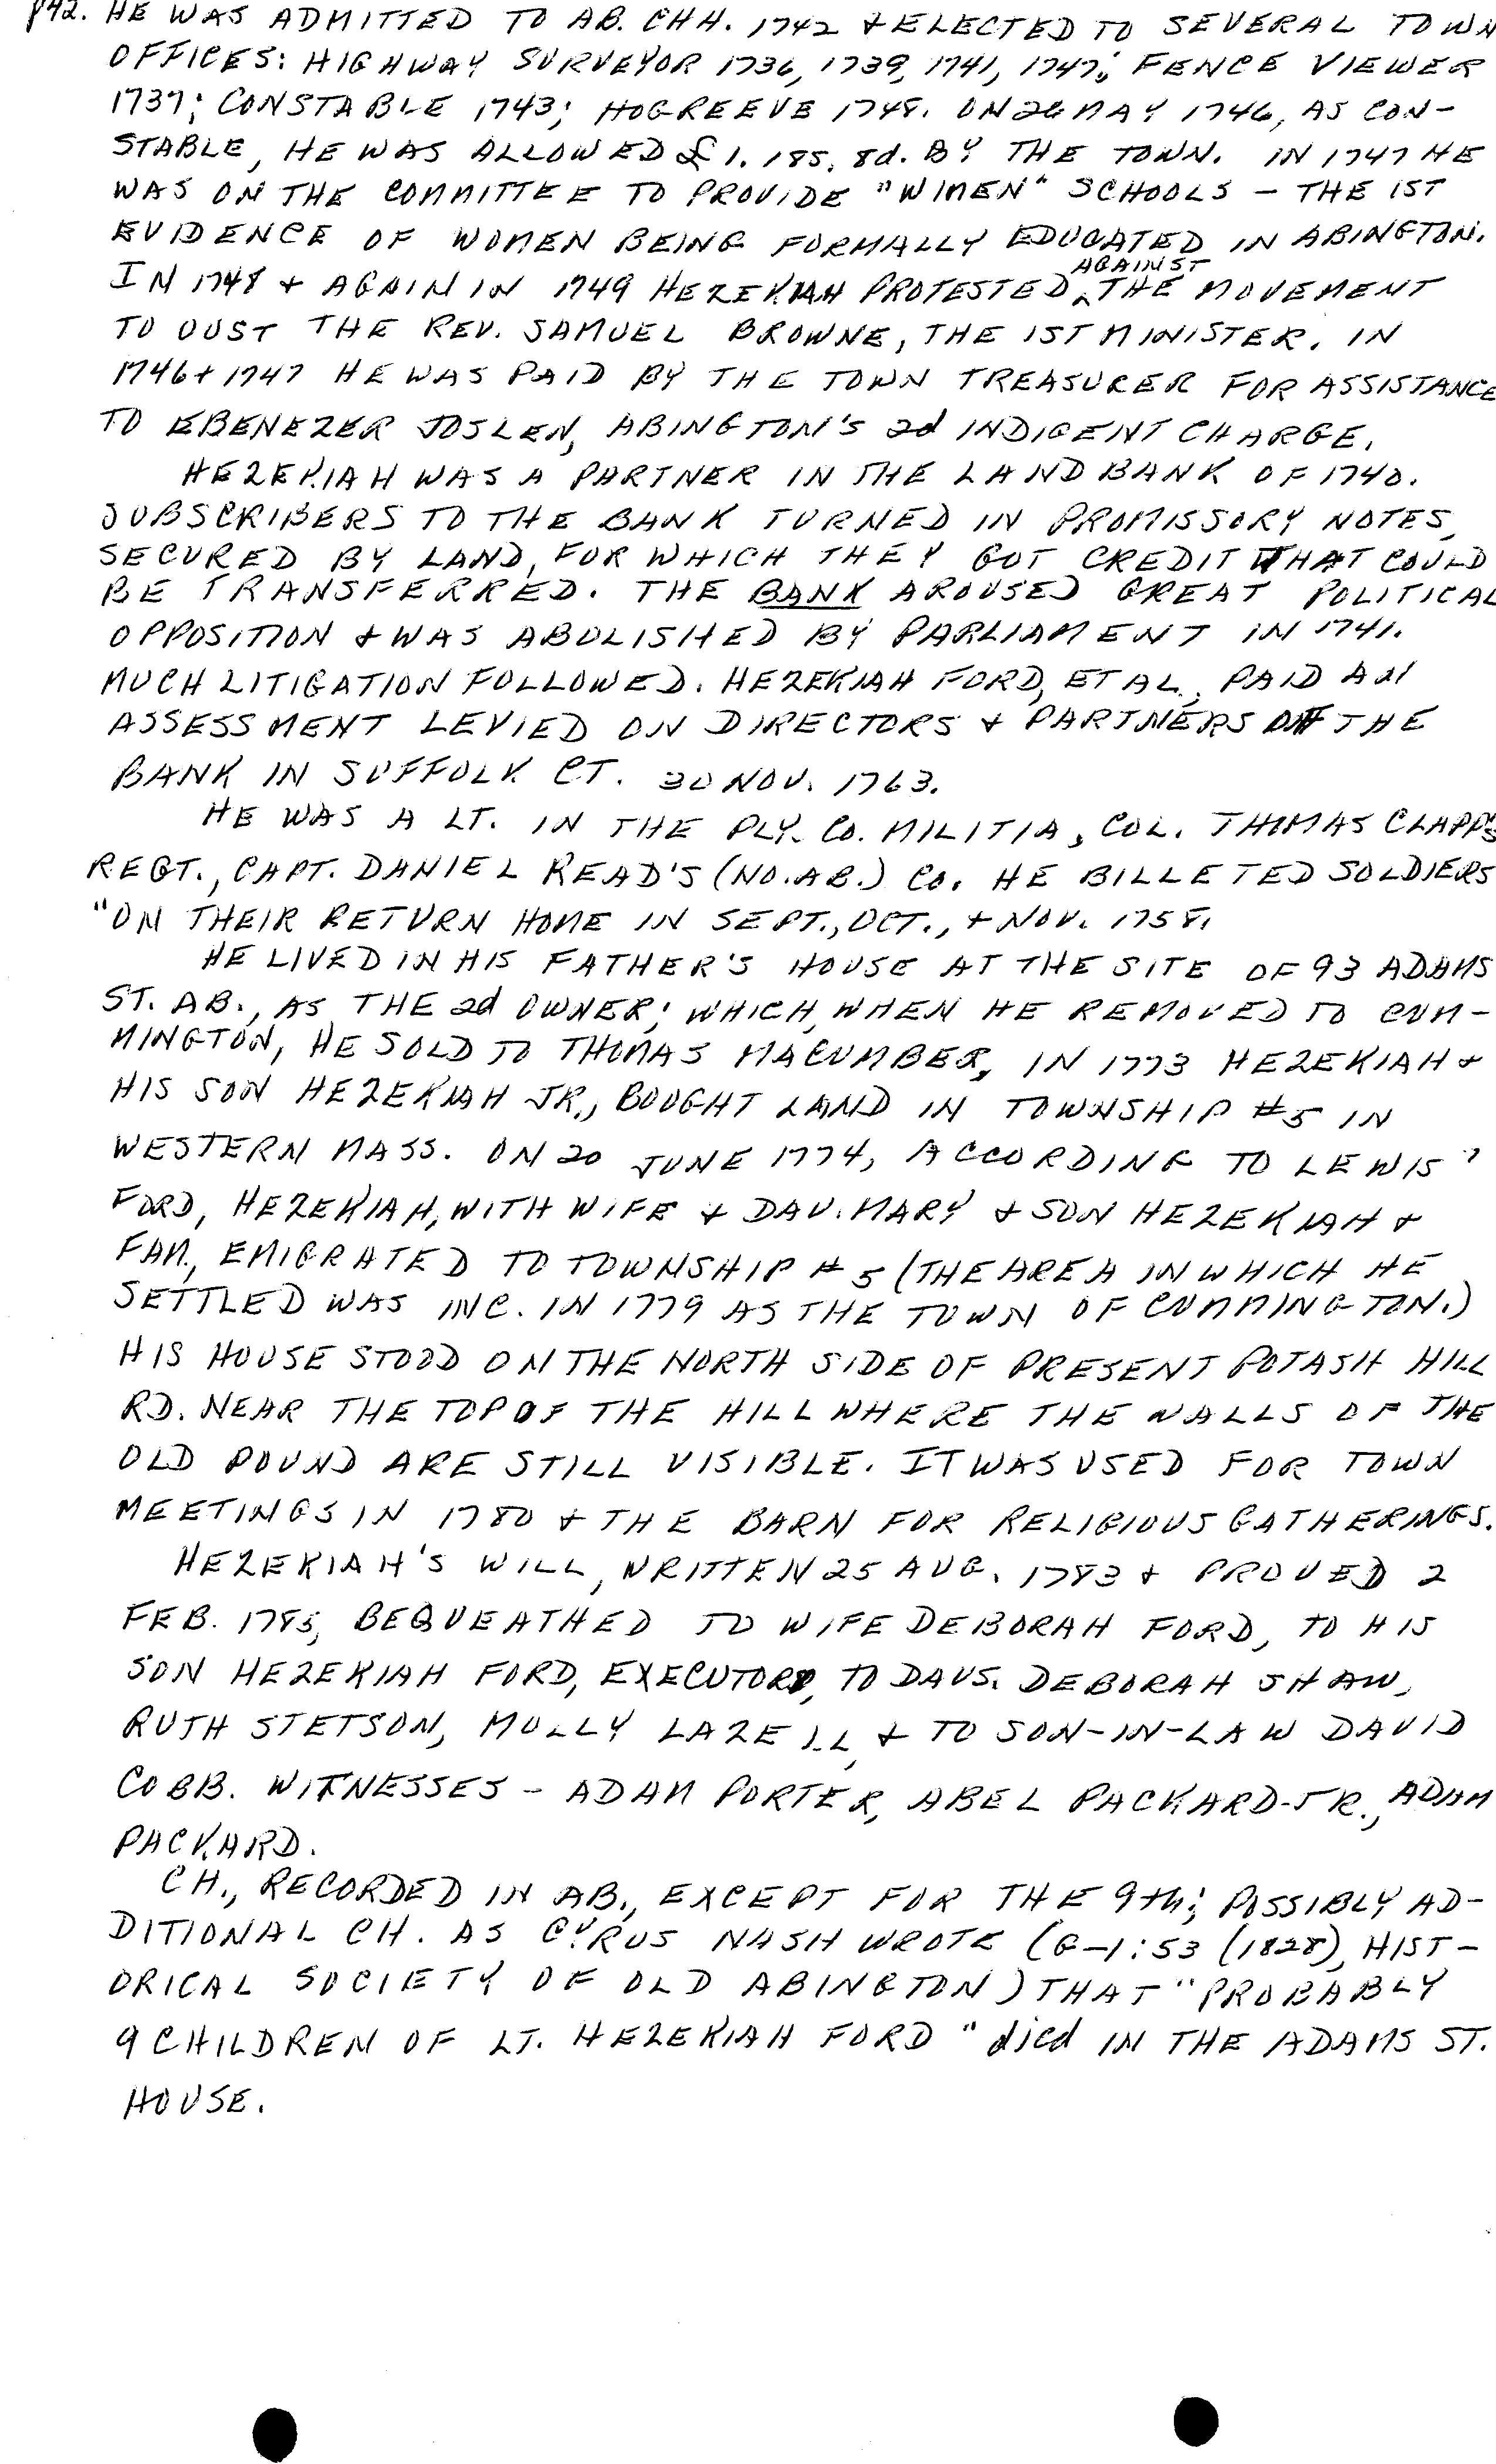 P42. HE WAS ADMITTED TO AB. CHH. 1742 & ELECTED TO SEVERAL TOWN
OFFICES: HIGHWAY SURVEYOR 1736, 1739, 1741, 1747; FENCE VIEWER
1737; CONSTABLE 1743; HOGREEVE 1748. ON 26 MAY 1746, AS CON-
STABLE, HE WAS ALLOWED £1. 18S. 8d. BY THE TOWN. IN 1747 HE
WAS ON THE COMMITTEE TO PROVIDE "WIMEN" SCHOOLS - THE 1ST
EVIDENCE OF WOMEN BEING FORMALLY EDUCATED IN ABINGTON.
IN 1748 & AGAIN IN 1749 HEZEKIAH PROTESTED AGAINST THE MOVEMENT
TO OUST THE REV. SAMUEL BROWNE, THE 1ST MINISTER. IN
1746 & 1747 HE WAS PAID BY THE TOWN TREASURER FOR ASSISTANCE
TO EBENEZER JOSLEN, ABINGTON'S 2d INDIGENT CHARGE.
HEZEKIAH WAS A PARTNER IN THE LAND BANK OF 1740.
SUBSCRIBERS TO THE BANK TURNED IN PROMISSORY NOTES,
SECURED BY LAND, FOR WHICH THEY GOT CREDIT THAT COULD
BE TRANSFERRED. THE BANK AROUSED GREAT POLITICAL
OPPOSITION & WAS ABOLISHED BY PARLIAMENT IN 1741.
MUCH LITIGATION FOLLOWED. HEZEKIAH FORD, ET AL., PAID AN
ASSESSMENT LEVIED ON DIRECTORS & PARTNERS OF THE
BANK IN SUFFOLK CT. 30 NOV. 1763.
HE WAS A LT. IN THE PLY. CO. MILITIA, COL. THOMAS CLAPP'S
REGT., CAPT. DANIEL READ'S (NO. AB.) CO. HE BILLETED SOLDIERS
"ON THEIR RETURN HOME IN SEPT., OCT., & NOV. 1758.
HE LIVED IN HIS FATHER'S HOUSE AT THE SITE OF 93 ADAMS
ST. AB., AS THE 2d OWNER; WHICH, WHEN HE REMOVED TO CUM-
MINGTON, HE SOLD TO THOMAS MACUMBER, IN 1773 HEZEKIAH &
HIS SON HEZEKIAH JR., BOUGHT LAND IN TOWNSHIP #5 IN
WESTERN MASS. ON 20 JUNE 1774, ACCORDING TO LEWIS
FORD, HEZEKIAH, WITH WIFE & DAU. MARY & SON HEZEKIAH &
FAM., EMIGRATED TO TOWNSHIP #5 (THE AREA IN WHICH HE
SETTLED WAS INC. IN 1779 AS THE TOWN OF CUMMINGTON.)
HIS HOUSE STOOD ON THE NORTH SIDE OF PRESENT POTASH HILL
RD. NEAR THE TOP OF THE HILL WHERE THE WALLS OF THE
OLD POUND ARE STILL VISIBLE. IT WAS USED FOR TOWN
MEETINGS IN 1780 & THE BARN FOR RELIGIOUS GATHERINGS.
HEZEKIAH'S WILL, WRITTEN 25 AUG. 1783 & PROVED 2
FEB. 1785, BEQUEATHED TO WIFE DEBORAH FORD, TO HIS
SON HEZEKIAH FORD, EXECUTOR, TO DAUS. DEBORAH SHAW,
RUTH STETSON, MOLLY LAZELL, & TO SON-IN-LAW DAVID
COBB. WITNESSES - ADAM PORTER, ABEL PACKARD-JR., ADAM
PACKARD.
CH., RECORDED IN AB., EXCEPT FOR THE 9th; POSSIBLY AD-
DITIONAL CH. AS CYRUS NASH WROTE (G-1:53 (1828), HIST-
ORICAL SOCIETY OF OLD ABINGTON) THAT "PROBABLY
9 CHILDREN OF LT. HEZEKIAH FORD" died IN THE ADAMS ST.
HOUSE.